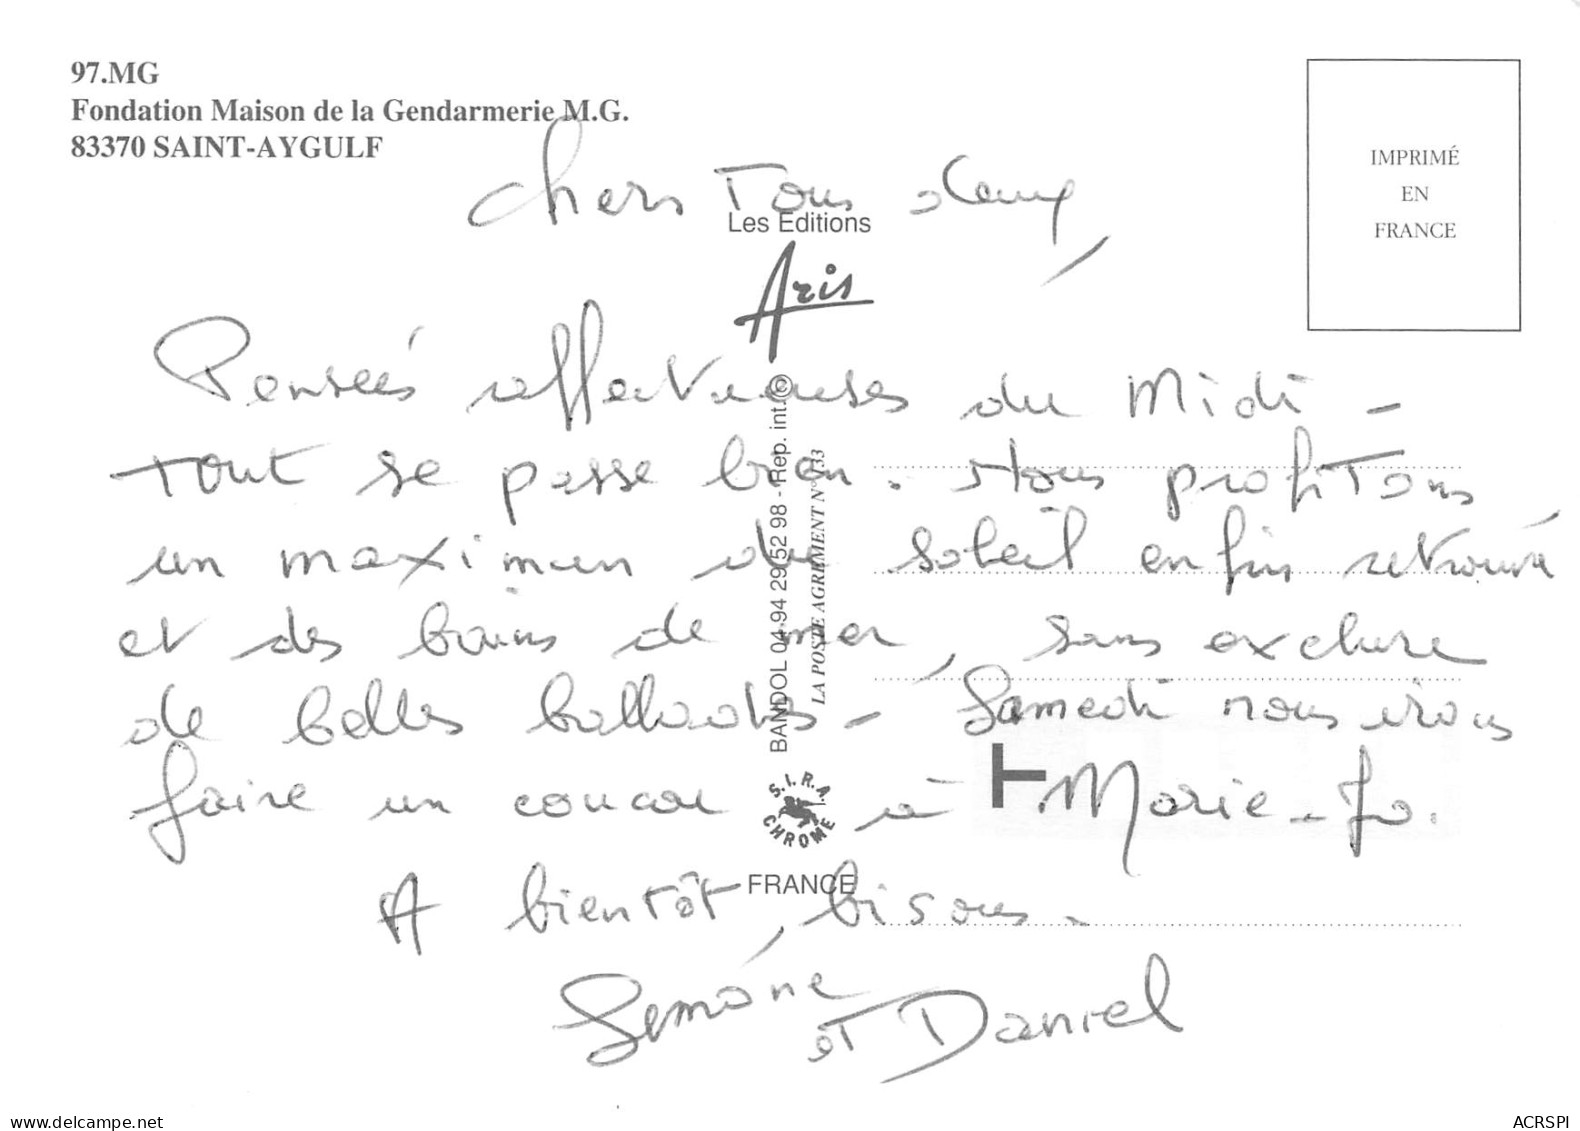 97.MG
Fondation Maison de la Gendarmerie M.G.
83370 SAINT-AYGULF
IMPRIMÉ
EN
FRANCE
Chers Tous deux,
Les Editions
Aris
Pensées affectueuses du Midi -
tout se passe bien. Nous profitons
un maximum de soleil enfin retrouvé
et des bains de mer, sans exclure
de belles ballades - Samedi nous irons
faire un coucou à Marie-Jo.
A bientôt, bisous.
Simone
et Daniel
BANDOL 04 94 29 52 98 - Rep. int. ©
LA POSTE AGRÉMENT N° 133
S.I.R.A.
CHROME
FRANCE
delcampe.net
ACRSPI